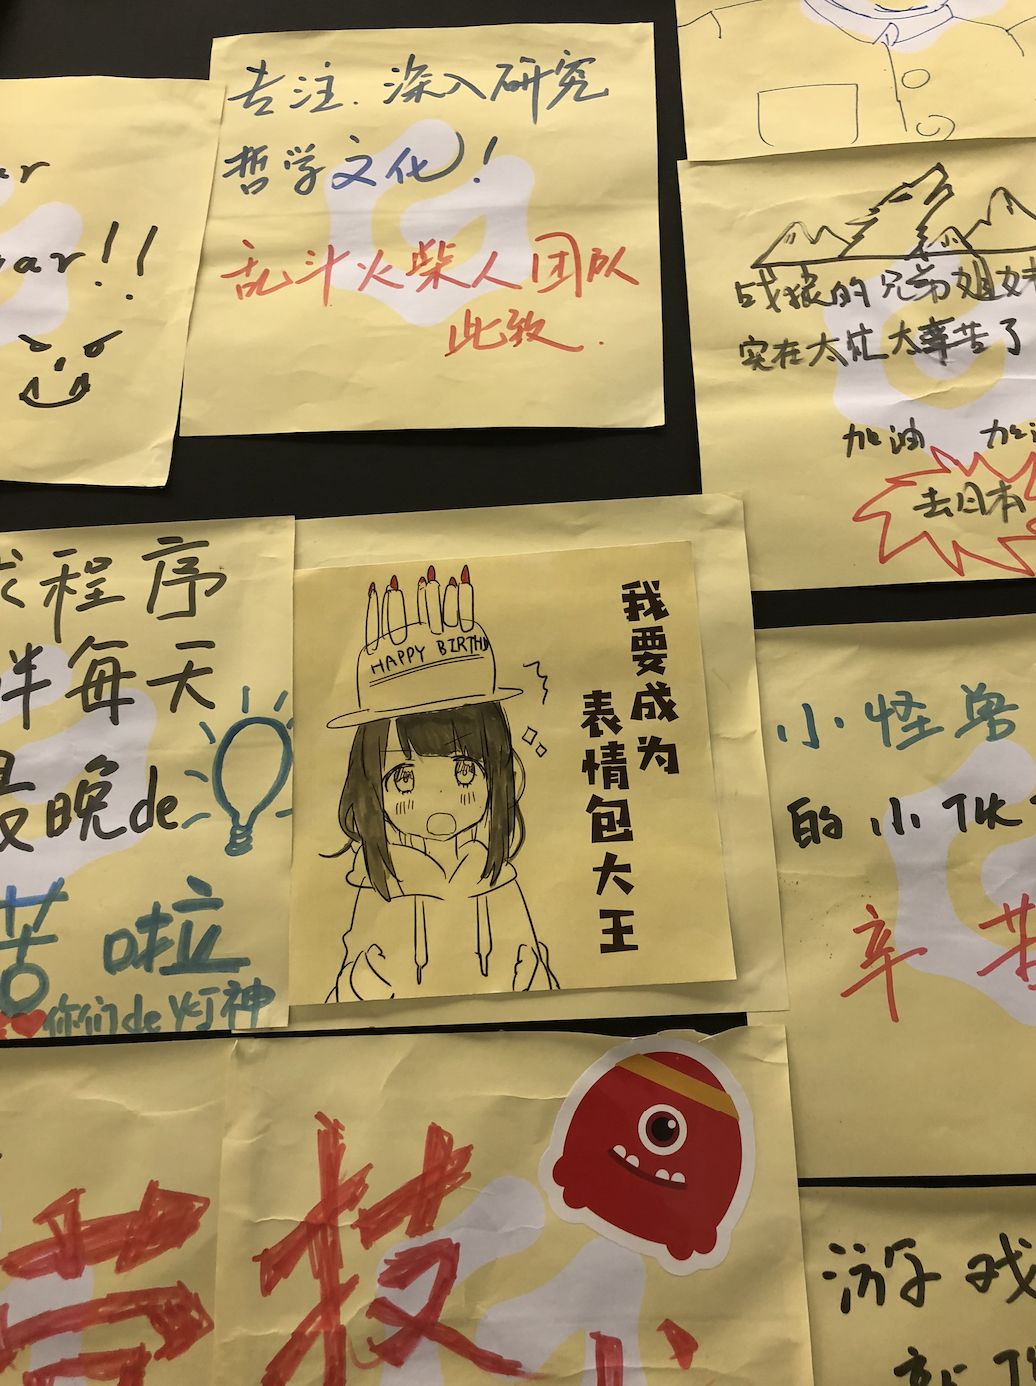 ar!!
专注.深入研究
哲学文化!
乱斗火柴人团队
此致.
战狼的兄弟姐妹
实在太忙太辛苦了
加油 加油
去日本
程序
每天
晚de
苦啦
你们de灯神
HAPPY BIRTH
我要成为
表情包大王
小怪兽
的小伙
辛苦
技
游戏